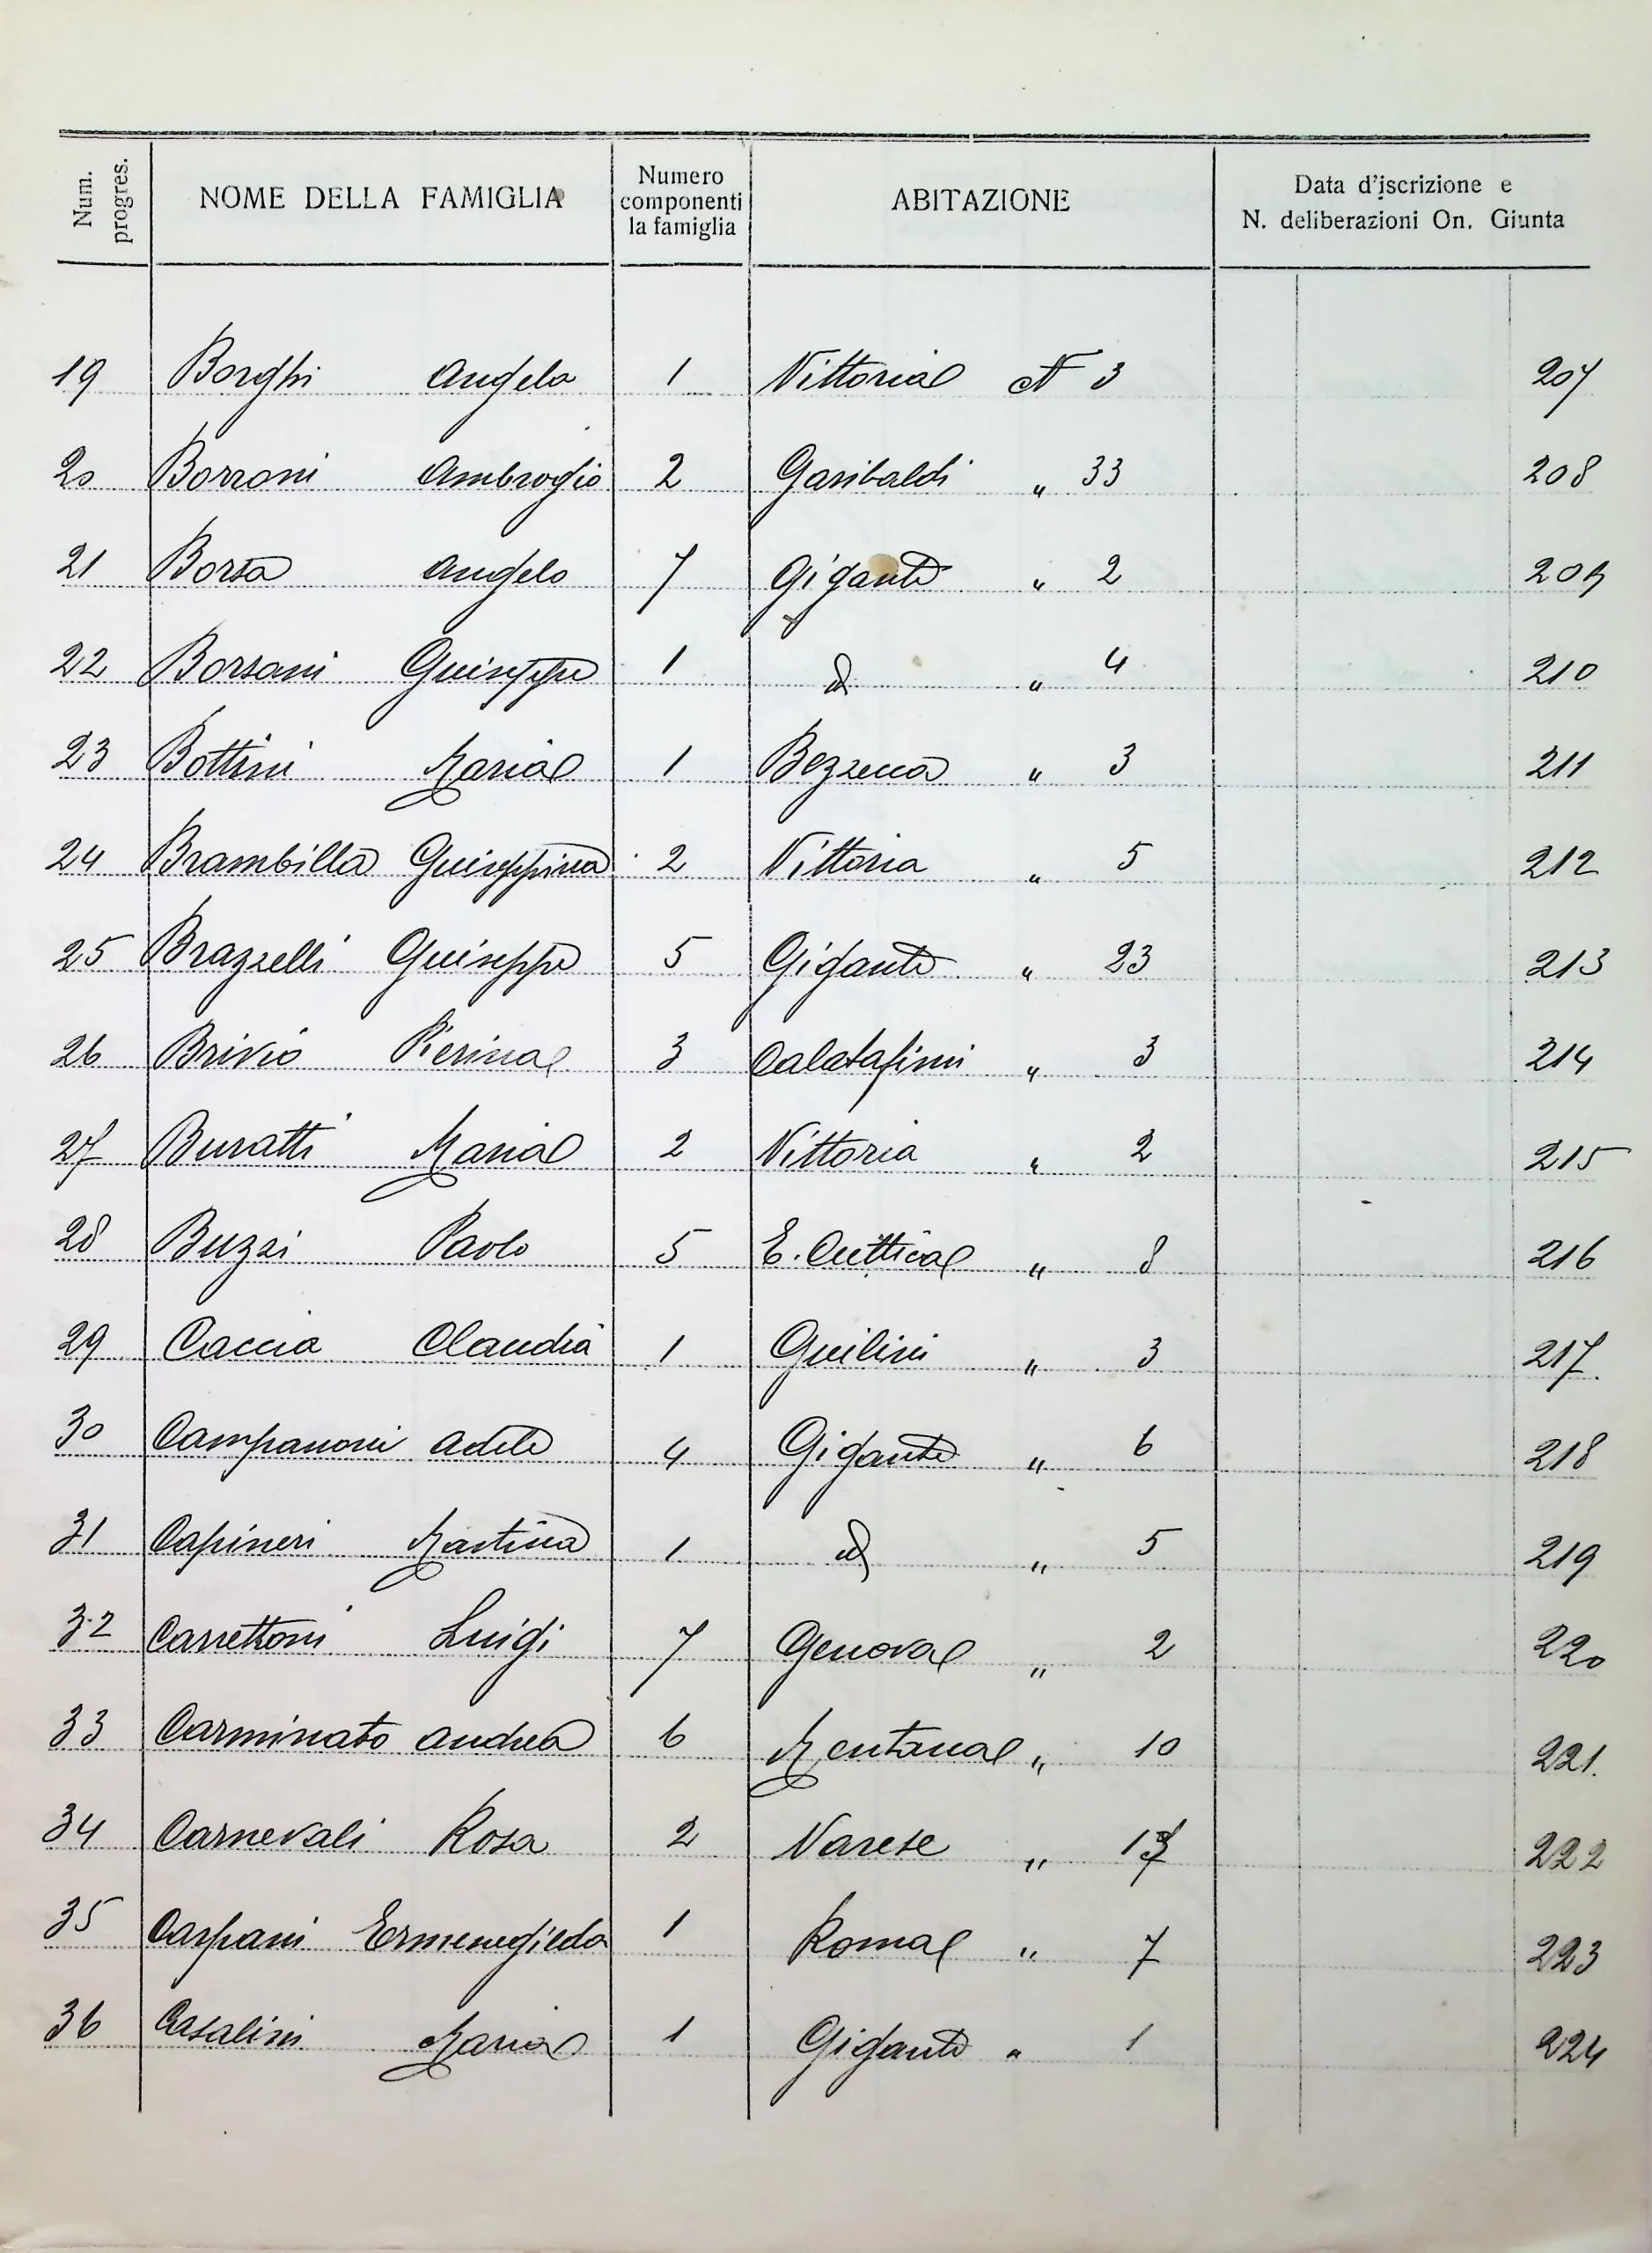 Num. progres. NOME DELLA FAMIGLIA Numero componenti la famiglia ABITAZIONE Data d'iscrizione e N. deliberazioni On. Giunta
19 Borghi Angela 1 Vittoria N 3 207
20 Borroni Ambrogio 2 Garibaldi " 33 208
21 Borsa Angelo 7 Gigante " 2 209
22 Borsani Giuseppe 1 d " 4 210
23 Bottini Maria 1 Bezzecca " 3 211
24 Brambilla Giuseppina 2 Vittoria " 5 212
25 Brazzelli Giuseppe 5 Gigante " 23 213
26 Brivio Pierina 3 Calatafimi " 3 214
27 Buratti Maria 2 Vittoria " 2 215
28 Buzzi Paolo 5 E. Cuttica " 8 216
29 Caccia Claudia 1 Guilini " 3 217
30 Campanoni Adele 4 Gigante " 6 218
31 Capineri Martina 1 d " 5 219
32 Carrettoni Luigi 7 Genova " 2 220
33 Carminato Andrea 6 Mentana " 10 221
34 Carnevali Rosa 2 Varese " 222
35 Caspani Ermenegilda 1 Roma " 7 223
36 Casalini Maria 1 Gigante " 1 224